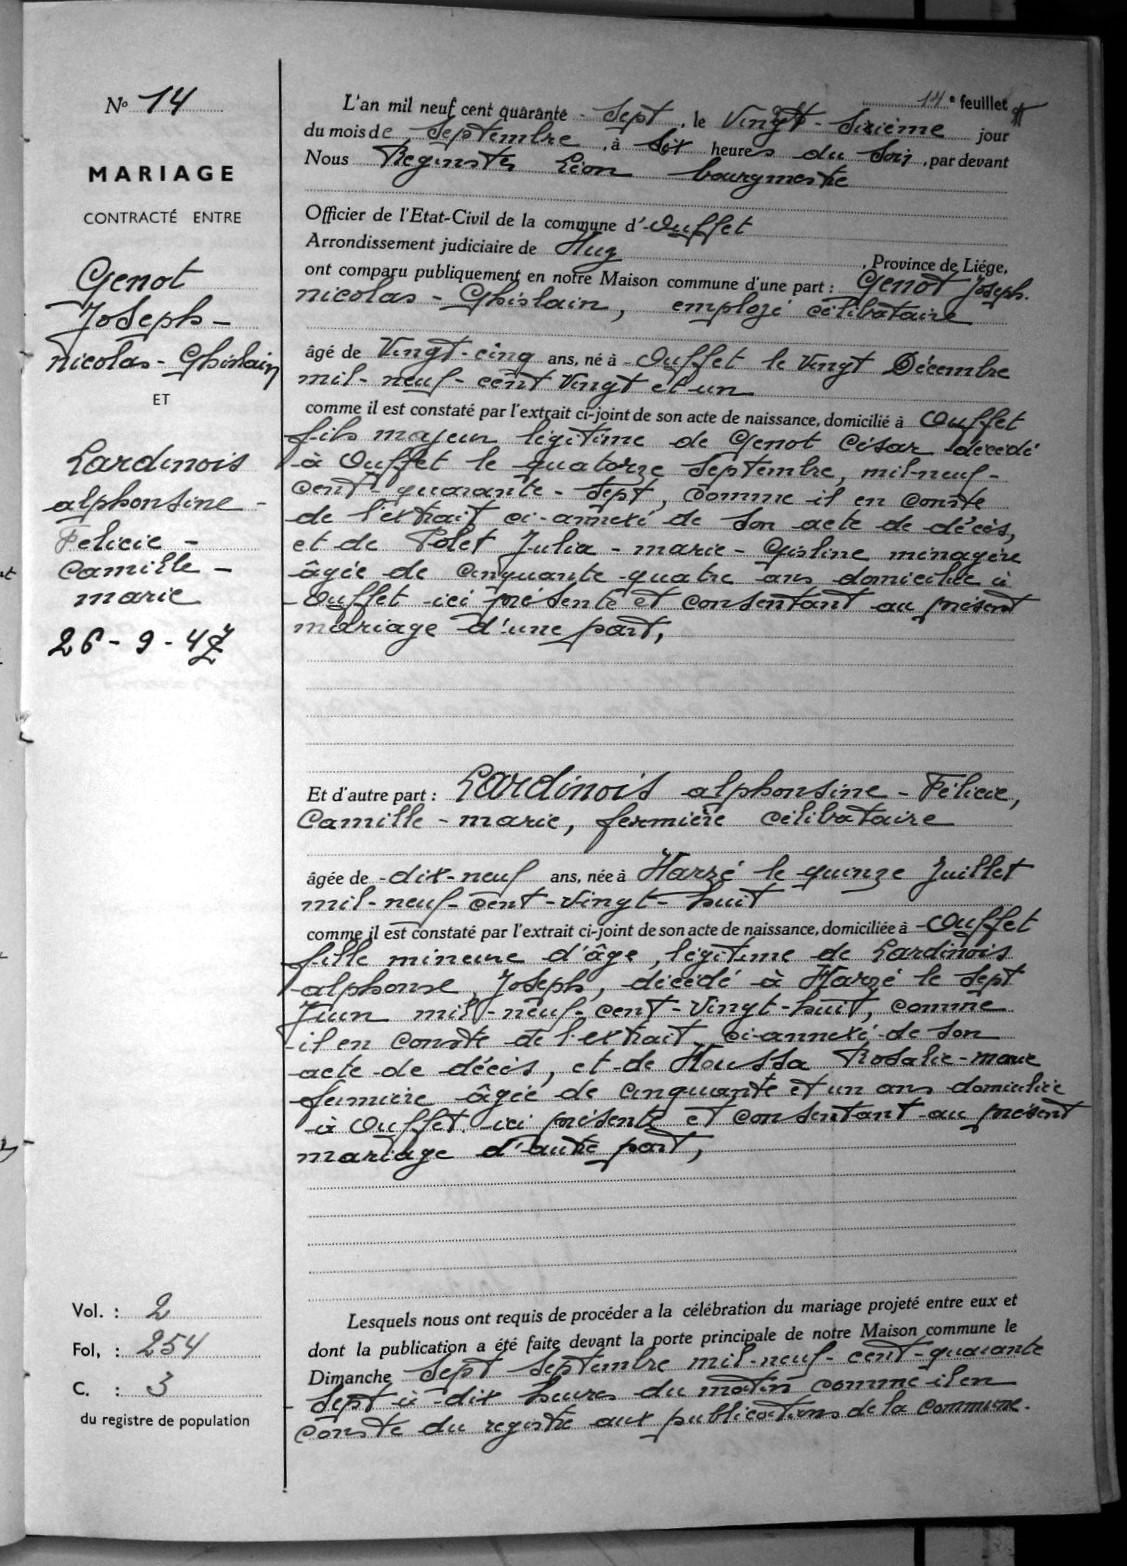 N° 14
MARIAGE
CONTRACTÉ ENTRE
Genot
Joseph -
nicolas - Ghislain
ET
Lardinois
alphonsine -
Felicie -
Camille -
marie
26 - 9 - 47
Vol. : 2
Fol. : 254
C. : 3
du registre de population
14e feuillet
L'an mil neuf cent quarante - Sept, le Vingt - Sixième jour
du mois de Septembre, à Six heures du Soir, par devant
Nous Reginster Léon bourgmestre
Officier de l'Etat-Civil de la commune d'Ouffet
Arrondissement judiciaire de Huy, Province de Liége,
ont comparu publiquement en notre Maison commune d'une part : Genot Joseph.
nicolas - Ghislain, employé célibataire
âgé de Vingt-cinq ans, né à Ouffet le Vingt Décembre
mil-neuf-cent Vingt et un
comme il est constaté par l'extrait ci-joint de son acte de naissance, domicilié à Ouffet
fils majeur légitime de Genot César décédé
à Ouffet le quatorze Septembre, mil-neuf-
cent-quarante-Sept, comme il en conste
de l'extrait ci-annexé de Son acte de décès,
et de Polet Julia - marie - Gisline ménagère
âgée de cinquante-quatre ans domiciliée à
Ouffet ici présente et consentant au présent
mariage d'une part,
Et d'autre part : Lardinois alphonsine - Félicie,
Camille - marie, fermière célibataire
âgée de dix-neuf ans, née à Harzé le quinze Juillet
mil-neuf-cent-Vingt-huit
comme il est constaté par l'extrait ci-joint de son acte de naissance, domiciliée à Ouffet
fille mineure d'âge, légitime de Lardinois
alphonse, Joseph, décédé à Harzé le Sept
Juin mil-neuf-cent-Vingt-huit, comme
il en conste de l'extrait ci-annexé de Son
acte de décès, et de Houssa Rosalie-marie
fermière âgée de cinquante et un ans domiciliée
à Ouffet ici présente et consentant au présent
mariage d'autre part,
Lesquels nous ont requis de procéder a la célébration du mariage projeté entre eux et
dont la publication a été faite devant la porte principale de notre Maison commune le
Dimanche Sept Septembre mil-neuf-cent-quarante
Sept à dix heures du matin comme il en
conste du registre aux publications de la commune.